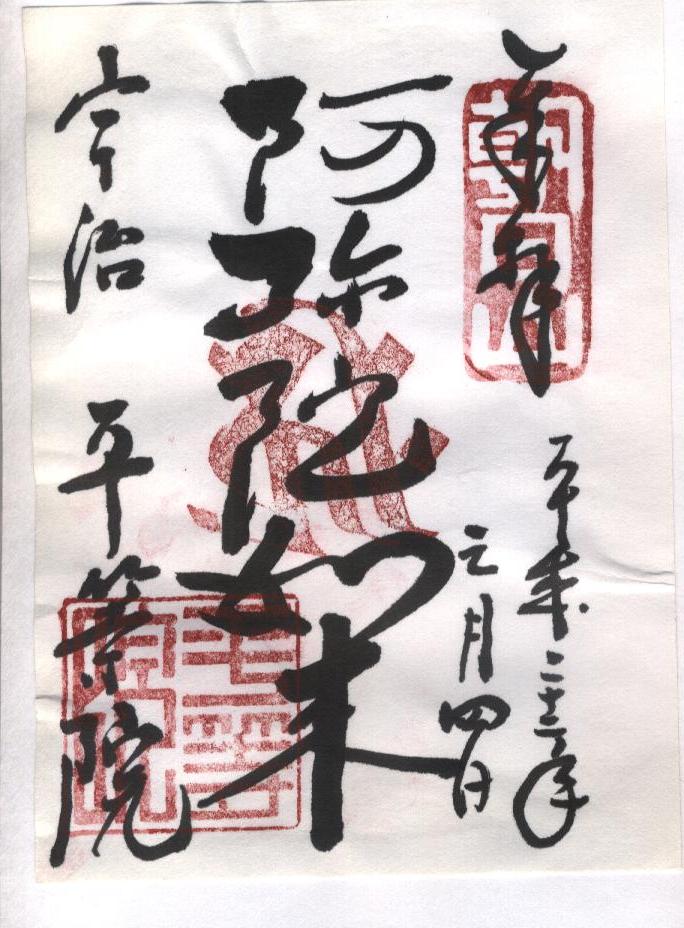 奉拝
朝日山
平成二十三年
月四日
阿弥陀如来
宇治 平等院